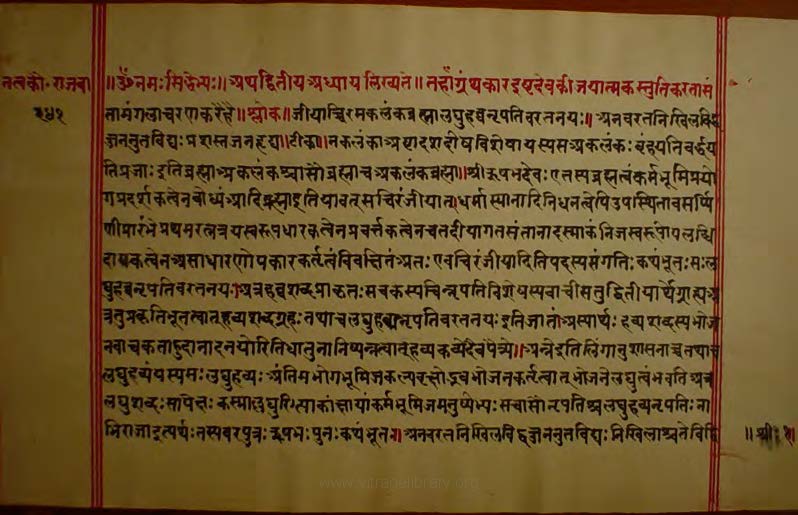 तत्वकौ॰ राजवा
२४१
॥ॐनमःसिद्धेभ्यः॥अथद्वितीयअध्यायलिख्यते॥तहांग्रंथकारइष्टदेवकीजयात्मकस्तुतिकरतासं
तामंगलाचरणकरैहै॥श्लोक॥जीयाच्चिरमकलंकब्रह्मालघुहव्वनृपतिवरतनयः॥अनवरतनिखिलविद्व
ज्जननुतविद्यःप्रशस्तजनहृद्यः॥टीका॥नकलंकाअष्टादशदोषविशेषायस्यसअकलंकः बृंहयतिवर्द्धय
तिप्रजाःइतिब्रह्माअकलंकश्चासौब्रह्माचअकलंकब्रह्मा॥श्रीऋषभदेवःएतस्यब्रह्मत्वंकर्मभूमिप्रयो
गप्रदर्शकत्वेनबोध्यंआदिब्रह्माइतियावत्सचिरंजीयात्॥धर्मास्यानादिनिधनत्वेपिउपस्थितावसर्प्पि
णीप्रारंभेप्रथमरत्नत्रयस्वरूपधारकत्वेनप्रवर्त्तकत्वेनचतदीयागतसंतानादस्माकंनिजस्वरूपोपलब्धि
दायकत्वेनअसाधारणोपकारकर्तृत्वंविवक्षितंअतःएवचिरंजीयादितिपदस्यसंगतिःकथंभूतःसःल
घुहव्वनृपतिवरतनयः॥अत्रहव्वशब्दःप्राकृतःसचकस्यचिन्नृपतिविशेषस्यवाचीसतुद्वितीयार्थेग्राह्यःअ
त्रतुप्रकृतिभूतत्वात्हव्यशब्दग्रहःतथाचलघुहव्यनृपतिवरतनयःइतिजातंअस्यार्थःहव्यशब्दस्यभोज
नवाचकताहुदानादनयोरितिधातुनानिष्पन्नत्वात्हव्यकव्येदैवपैत्र्ये॥अन्नेइतिलिंगानुशासनाच्चतथाच
लघुहव्यंयस्यसःलघुहव्यःअंतिमभोगभूमिजकल्पवृक्षोद्भवभोजनकर्तृत्वात्भोजनेलघुत्वंभवतिअत्र
लघुशब्दःसापेक्षःकस्माल्लघुरित्याकांक्षायांकर्मभूमिजमनुष्येभ्यःसचासौनृपतिश्चलघुहव्यनृपतिःना
भिराजाइत्यर्थःतस्यवरपुत्रःऋषभःपुनःकथंभूतः॥अनवरतनिखिलविद्वज्जननुतविद्यःनिखिलाश्चतेविद्वि
॥श्रीः १॥
www.vitragelibrary.org